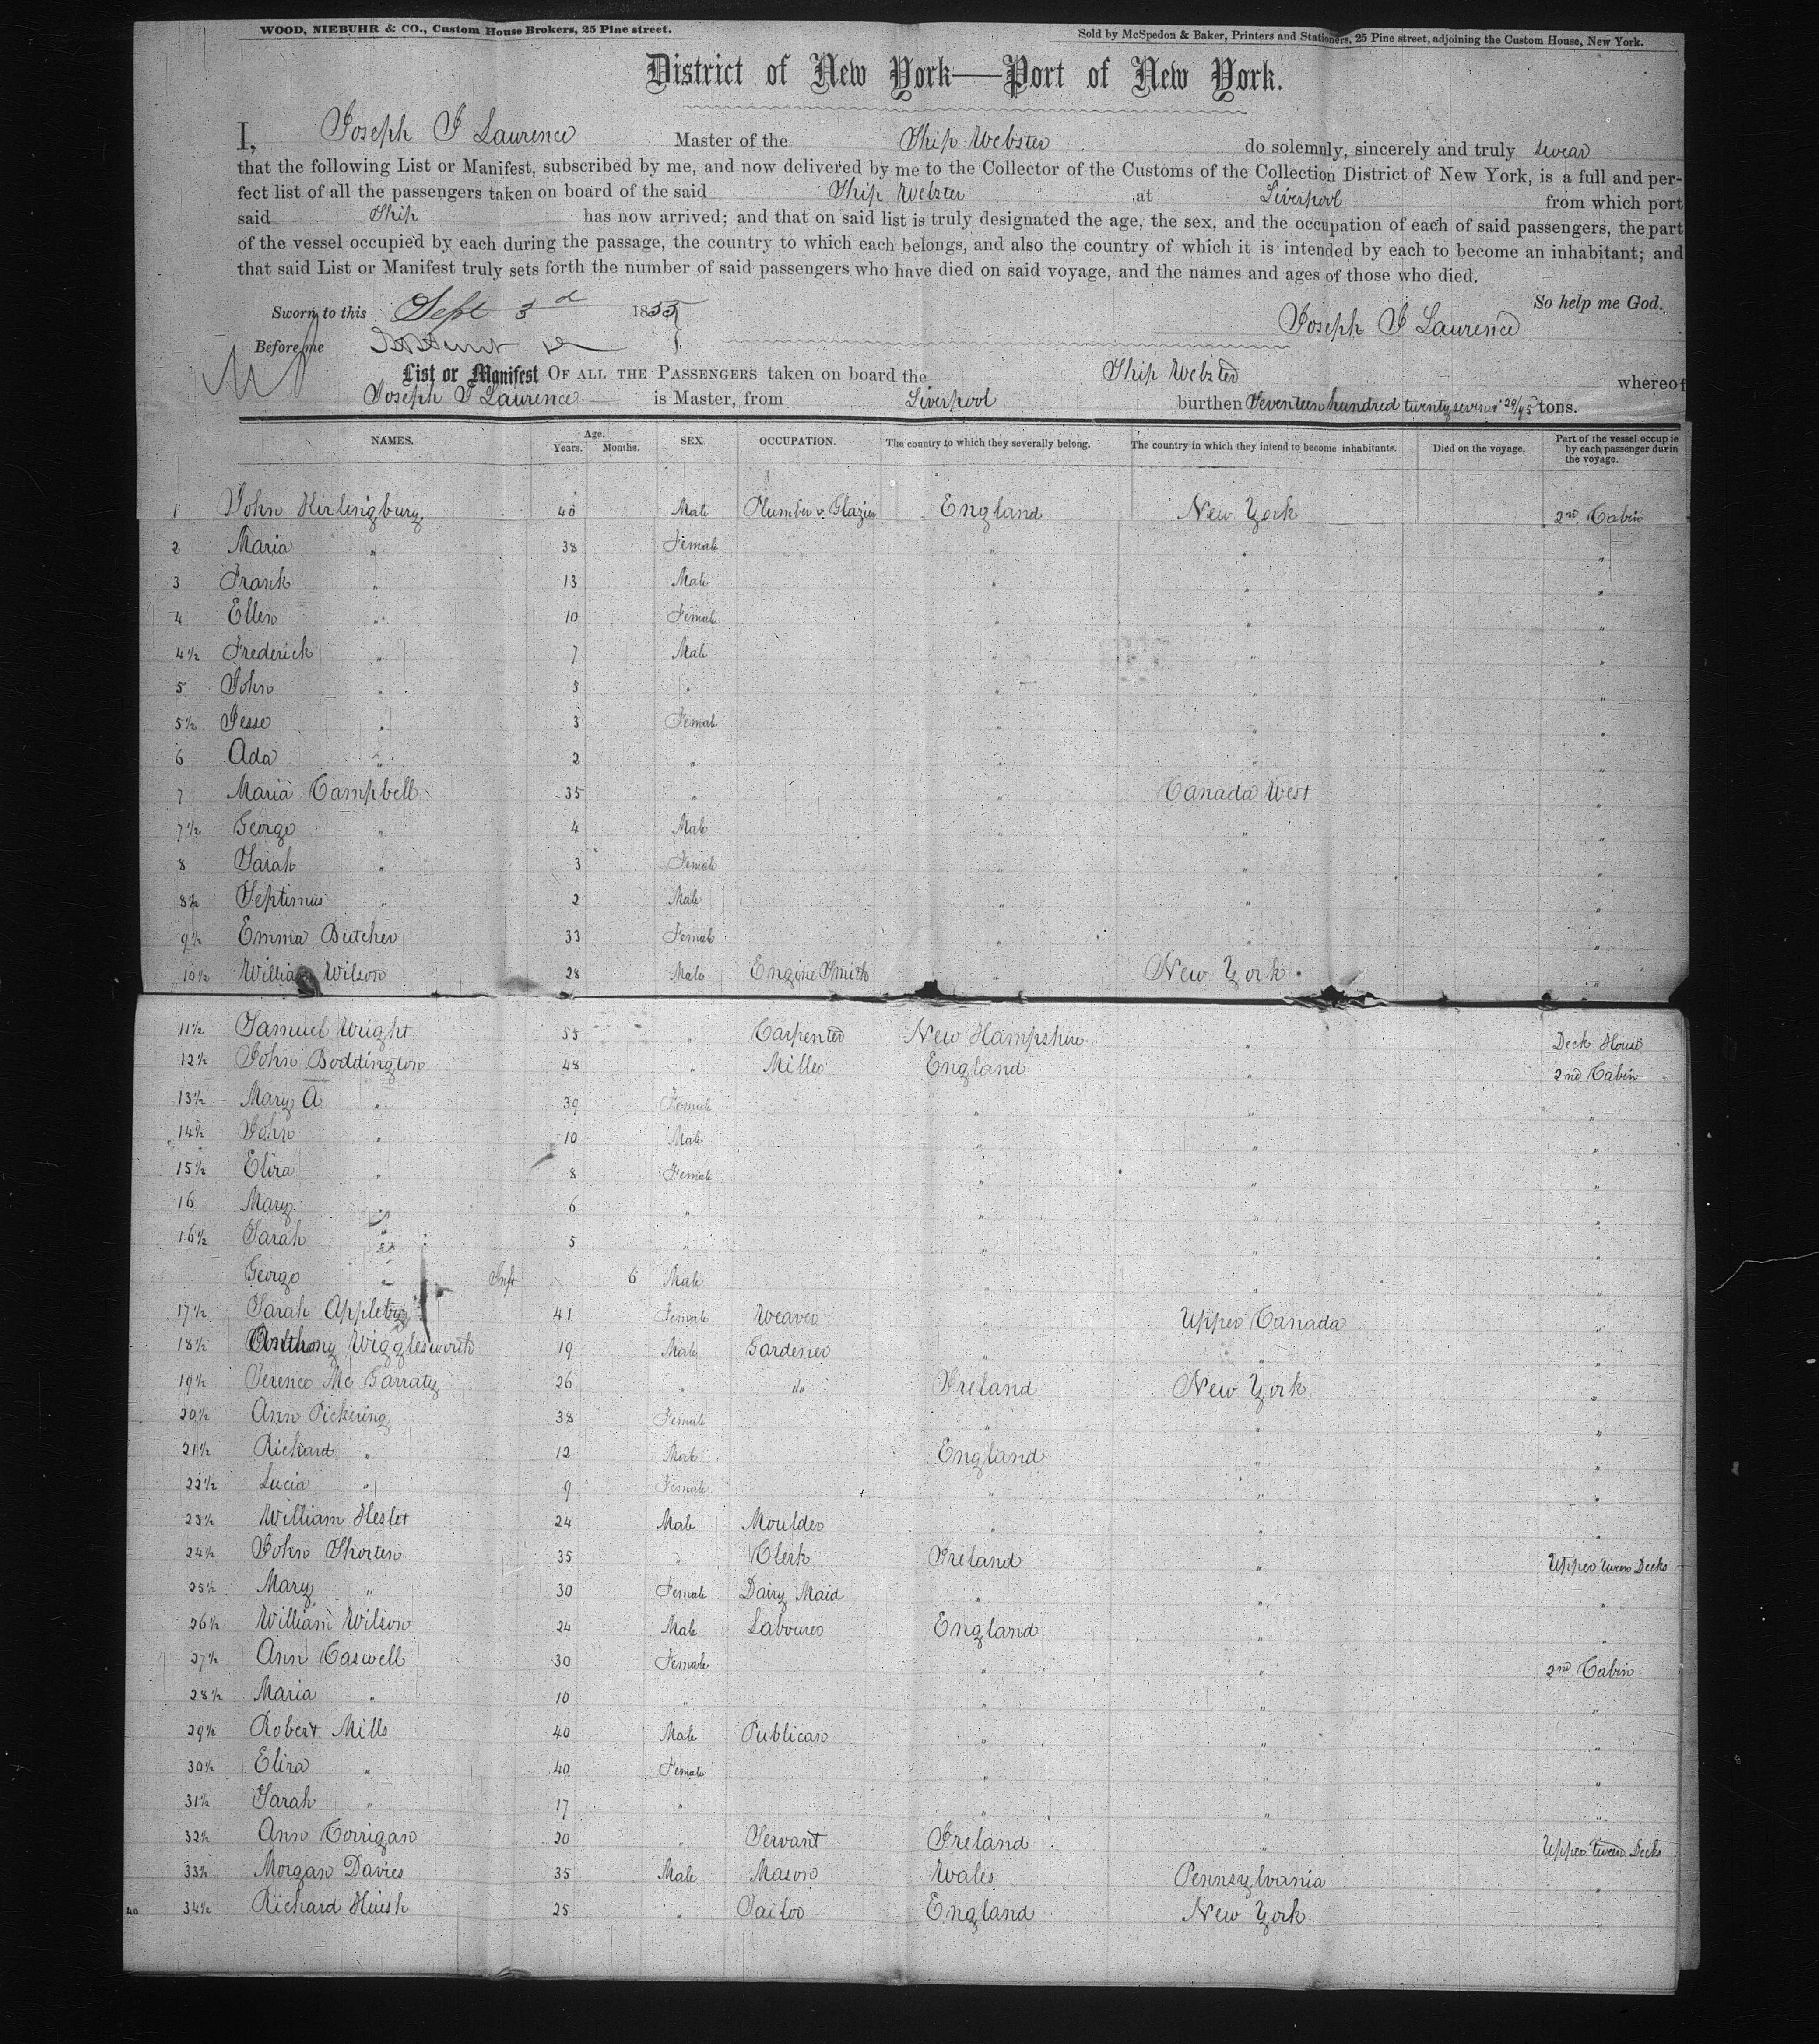 WOOD, NIEBUHR & CO., Custom House Brokers, 25 Pine street.
Sold by McSpedon & Baker, Printers and Stationers, 25 Pine street, adjoining the Custom House, New York.
District of New York—Port of New York.
I, Joseph J Laurence Master of the Ship Webster do solemnly, sincerely and truly swear
that the following List or Manifest, subscribed by me, and now delivered by me to the Collector of the Customs of the Collection District of New York, is a full and per-
fect list of all the passengers taken on board of the said Ship Webster at Liverpool from which port
said Ship has now arrived; and that on said list is truly designated the age, the sex, and the occupation of each of said passengers, the part
of the vessel occupied by each during the passage, the country to which each belongs, and also the country of which it is intended by each to become an inhabitant; and
that said List or Manifest truly sets forth the number of said passengers who have died on said voyage, and the names and ages of those who died.
So help me God.
Sworn to this Sept 3d 1855
Joseph J Laurence
Before me
List or Manifest OF ALL THE PASSENGERS taken on board the Ship Webster whereof
Joseph J Laurence is Master, from Liverpool burthen Seventeen hundred twenty seven & 20/95 tons.
NAMES. Age. Years. Months. SEX. OCCUPATION. The country to which they severally belong. The country in which they intend to become inhabitants. Died on the voyage. Part of the vessel occupie by each passenger durin the voyage.
1 John Hirlingbury 40 Male Plumber & Glazier England New York 2nd Cabin
2 Maria " 38 Female " " "
3 Frank " 13 Male " " "
4 Ellen " 10 Female " " "
4½ Frederick " 7 Male " " "
5 John " 5 " " " "
5½ Jesse " 3 Female " " "
6 Ada " 2 " " " "
7 Maria Campbell 35 " " Canada West "
7½ George " 4 Male " " "
8 Sarah " 3 Female " " "
8½ Septimus " 2 Male " " "
9½ Emma Butcher 33 Female " " "
10½ William Wilson 28 Male Engine Smith " New York "
11½ Samuel Wright 55 " Carpenter New Hampshire " Deck House
12½ John Boddington 48 " Miller England " 2nd Cabin
13½ Mary A " 39 Female " " "
14½ John " 10 Male " " "
15½ Eliza " 8 Female " " "
16 Mary " 6 " " " "
16½ Sarah " 5 " " " "
George " Inft 6 Male " " "
17½ Sarah Appleby 41 Female Weaver " Upper Canada "
18½ Anthony Wigglesworth 19 Male Gardener " " "
19½ Terence Mc Garraty 26 " " Ireland New York "
20½ Ann Pickering 38 Female " " "
21½ Richard " 12 Male England " "
22½ Lucia " 9 Female " " "
23½ William Heslot 24 Male Moulder " " "
24½ John Shorten 35 " Clerk Ireland " Upper tween Decks
25½ Mary " 30 Female Dairy Maid " " "
26½ William Wilson 24 Male Labourer England " "
27½ Ann Caswell 30 Female " " 2nd Cabin
28½ Maria " 10 " " " "
29½ Robert Mills 40 Male Publican " " "
30½ Eliza " 40 Female " " "
31½ Sarah " 17 " " " "
32½ Ann Corrigan 20 " Servant Ireland " Upper tween Decks
33½ Morgan Davies 35 Male Mason Wales Pennsylvania "
40 34½ Richard Huish 25 " Tailor England New York "